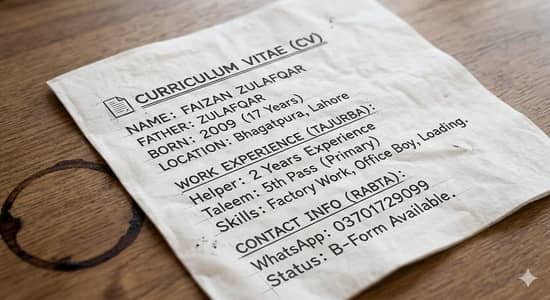 CURRICULUM VITAE (CV)
NAME: FAIZAN ZULAFQAR
FATHER: ZULAFQAR
BORN: 2009 (17 Years)
LOCATION: Bhagatpura, Lahore
WORK EXPERIENCE (TAJURBA):
Helper: 2 Years Experience
Taleem: 5th Pass (Primary)
Skills: Factory Work, Office Boy, Loading.
CONTACT INFO (RABTA):
WhatsApp: 03701729099
Status: B-Form Available.